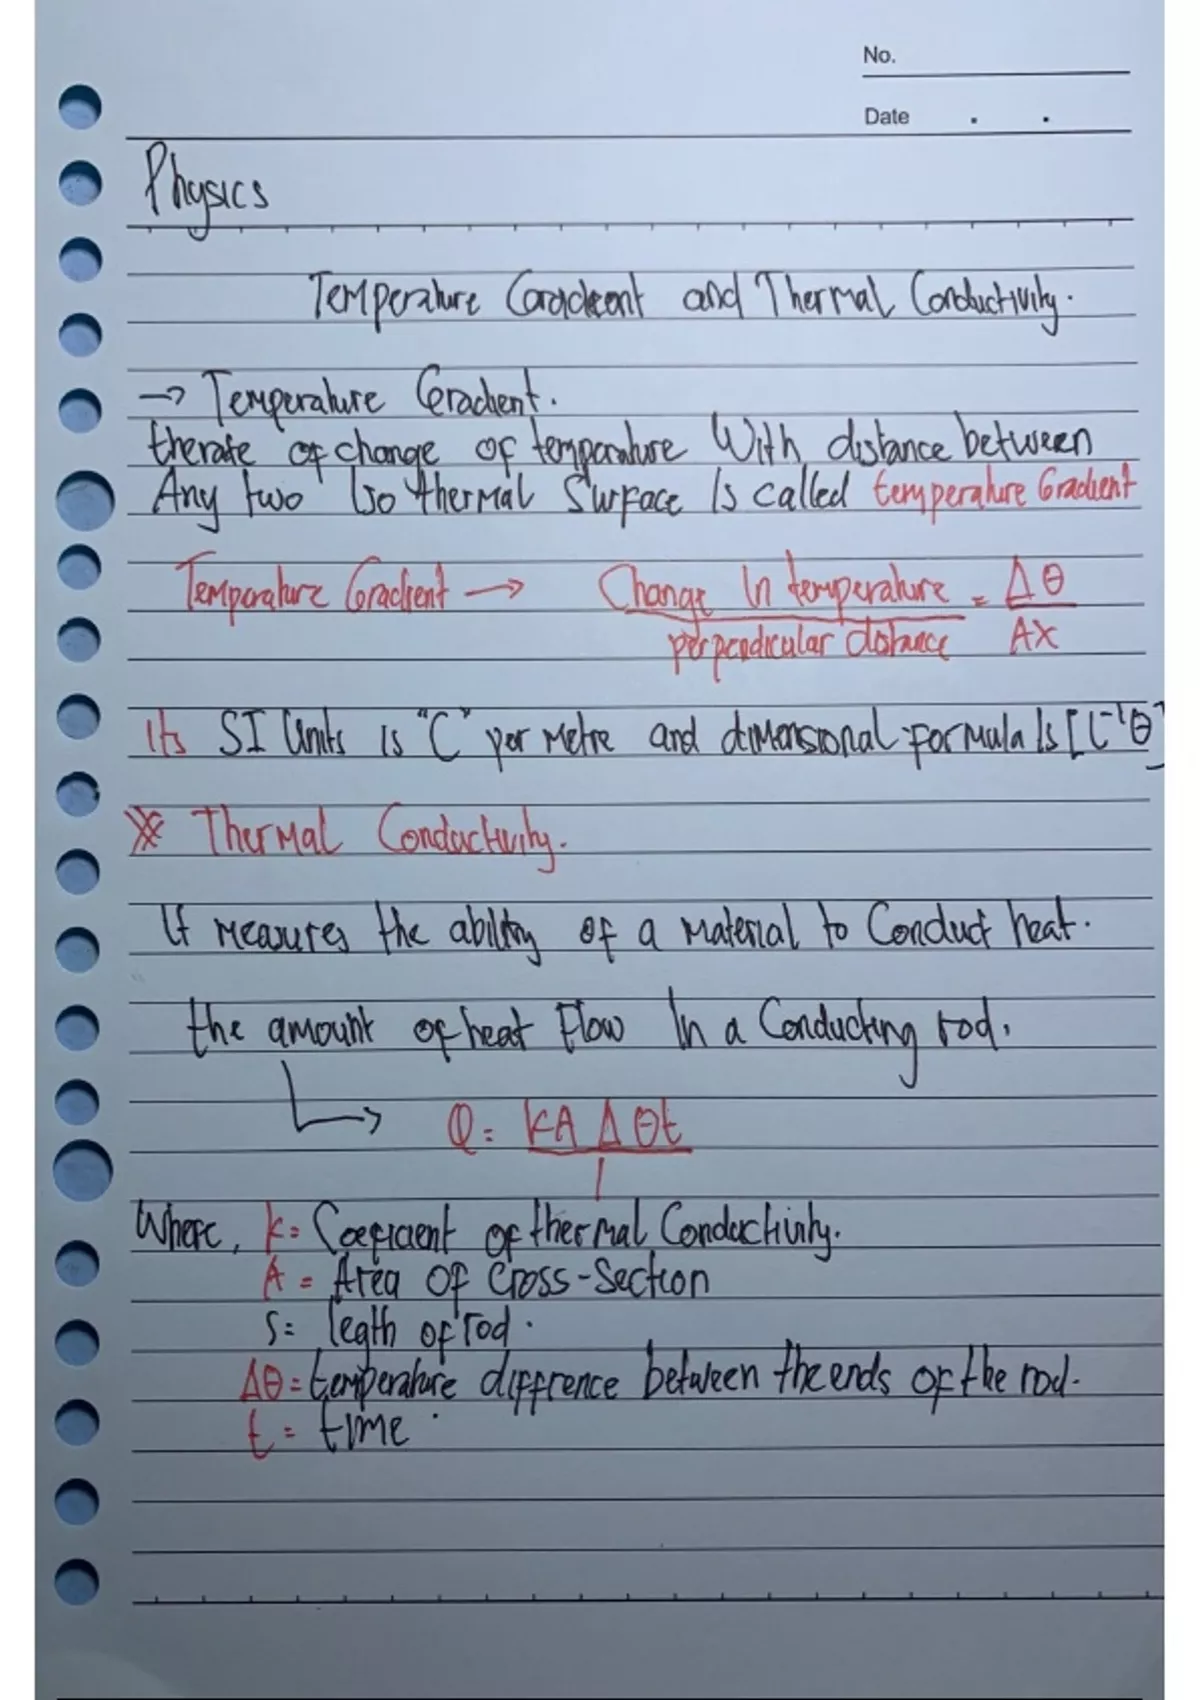 No.
Date . .
Physics
Temperature Gradient and Thermal Conductivity.
→ Temperature Gradient.
the rate of change of temperature With distance between
Any two Iso thermal Surface Is called temperature Gradient
Temperature Gradient → Change In temperature = Δθ
perpendicular distance Δx
Its SI Units is "C" per Metre and dimensional formula Is [L⁻¹θ]
※ Thermal Conductivity.
It measures the ability of a material to Conduct heat.
the amount of heat Flow In a Conducting rod.
→ Q = kA Δθt
l
Where, k = Coeficient of thermal Conductivity.
A = Area of Cross-Section
S = legth of rod.
Δθ = temperature diffrence between the ends of the rod.
t = time.